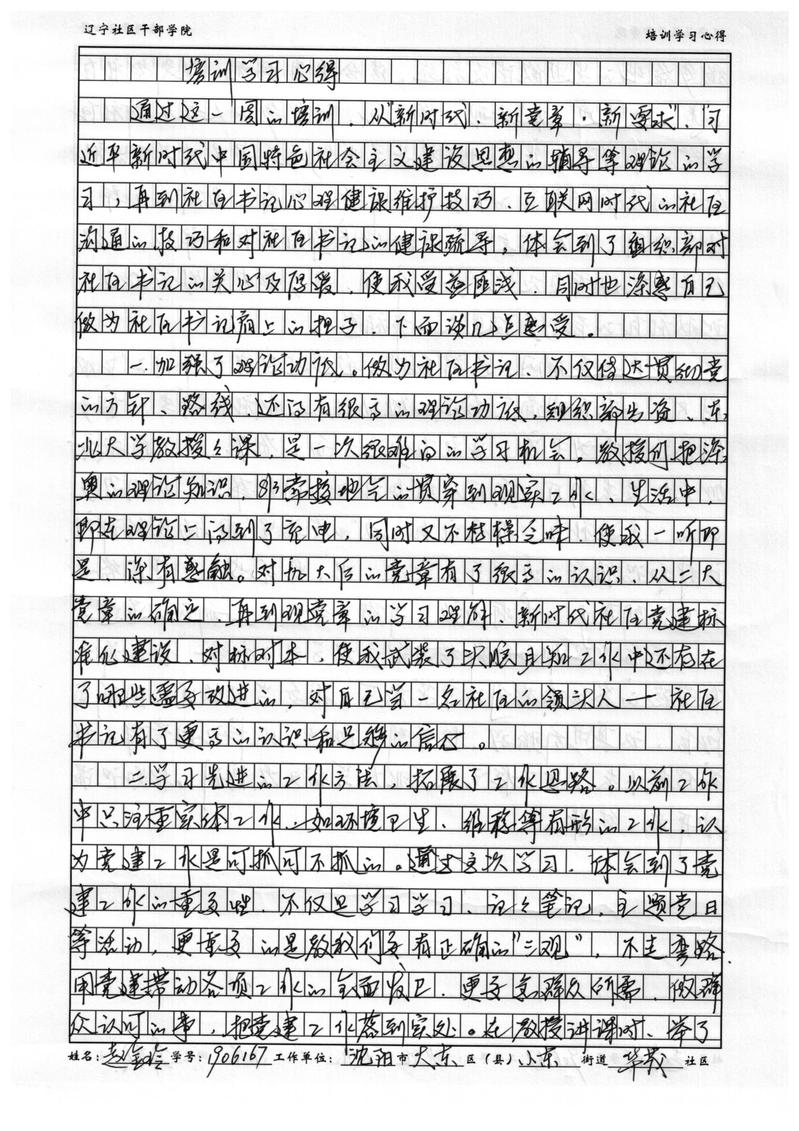 辽宁社区干部学院 培训学习心得
培训学习心得
通过这一周的培训，从"新时代·新党章·新要求"、"习
近平新时代中国特色社会主义建设思想的辅导等理论的学
习，再到社区书记心理健康维护技巧、互联网时代的社区
沟通的技巧和对社区书记的健康疏导，体会到了组织部对
社区书记的关心及厚爱，使我受益匪浅，同时也深感自己
做为社区书记肩上的担子，下面谈几点感受。
一、加强了理论功底。做为社区书记，不仅传达贯彻党
的方针、路线，还得有很高的理论功底，
北大学教授的课，是一次很难得的学习机会，教授们把深
奥的理论知识，的贯穿到现实工作、生活中，
即在理论上得到了充电，同时又不枯燥乏味，使我一听即
是，深有感触。对十九大后的党章有了很高的认识，从二大
党章的确定，再到现党章的学习理解，新时代社区党建标
准化建设，对标对本，使我武装了头脑，目前工作中还存在
了哪些需要改进的，对自己当一名社区的领头人——社区
书记有了更高的认识和足够的信心。
二、学习先进的工作方法，拓展了工作思路。以前工作
中只注重实体工作，如环境卫生、维稳等有形的工作，认
为党建工作是可抓可不抓的。通过这次学习，体会到了党
建工作的重要性，不仅是学习学习、记记笔记，主题党日
等活动，更重要的是教我们要有正确的"三观"，不走弯路，
用党建带动各项工作的全面发展，更要急群众所需，做群
众认可的事，把党建工作落到实处。在教授讲课时，举了
姓名：赵 学号：1906167 工作单位：沈阳市大东区（县）小东街道 社区